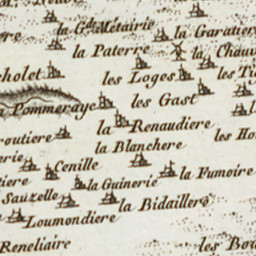 la G.de Métairie
la Garatier
la Paterre
la Chauv
cholet
les Loges
les Ti
la Pommeraye
les Gast
la Renaudiere
routiere
les Ho
la Blanchere
erie
Cenille
la Fumoire
tiere
la Guinerie
Sauzelle
la Bidaillere
Loumondiere
Reneliaire
les Bou